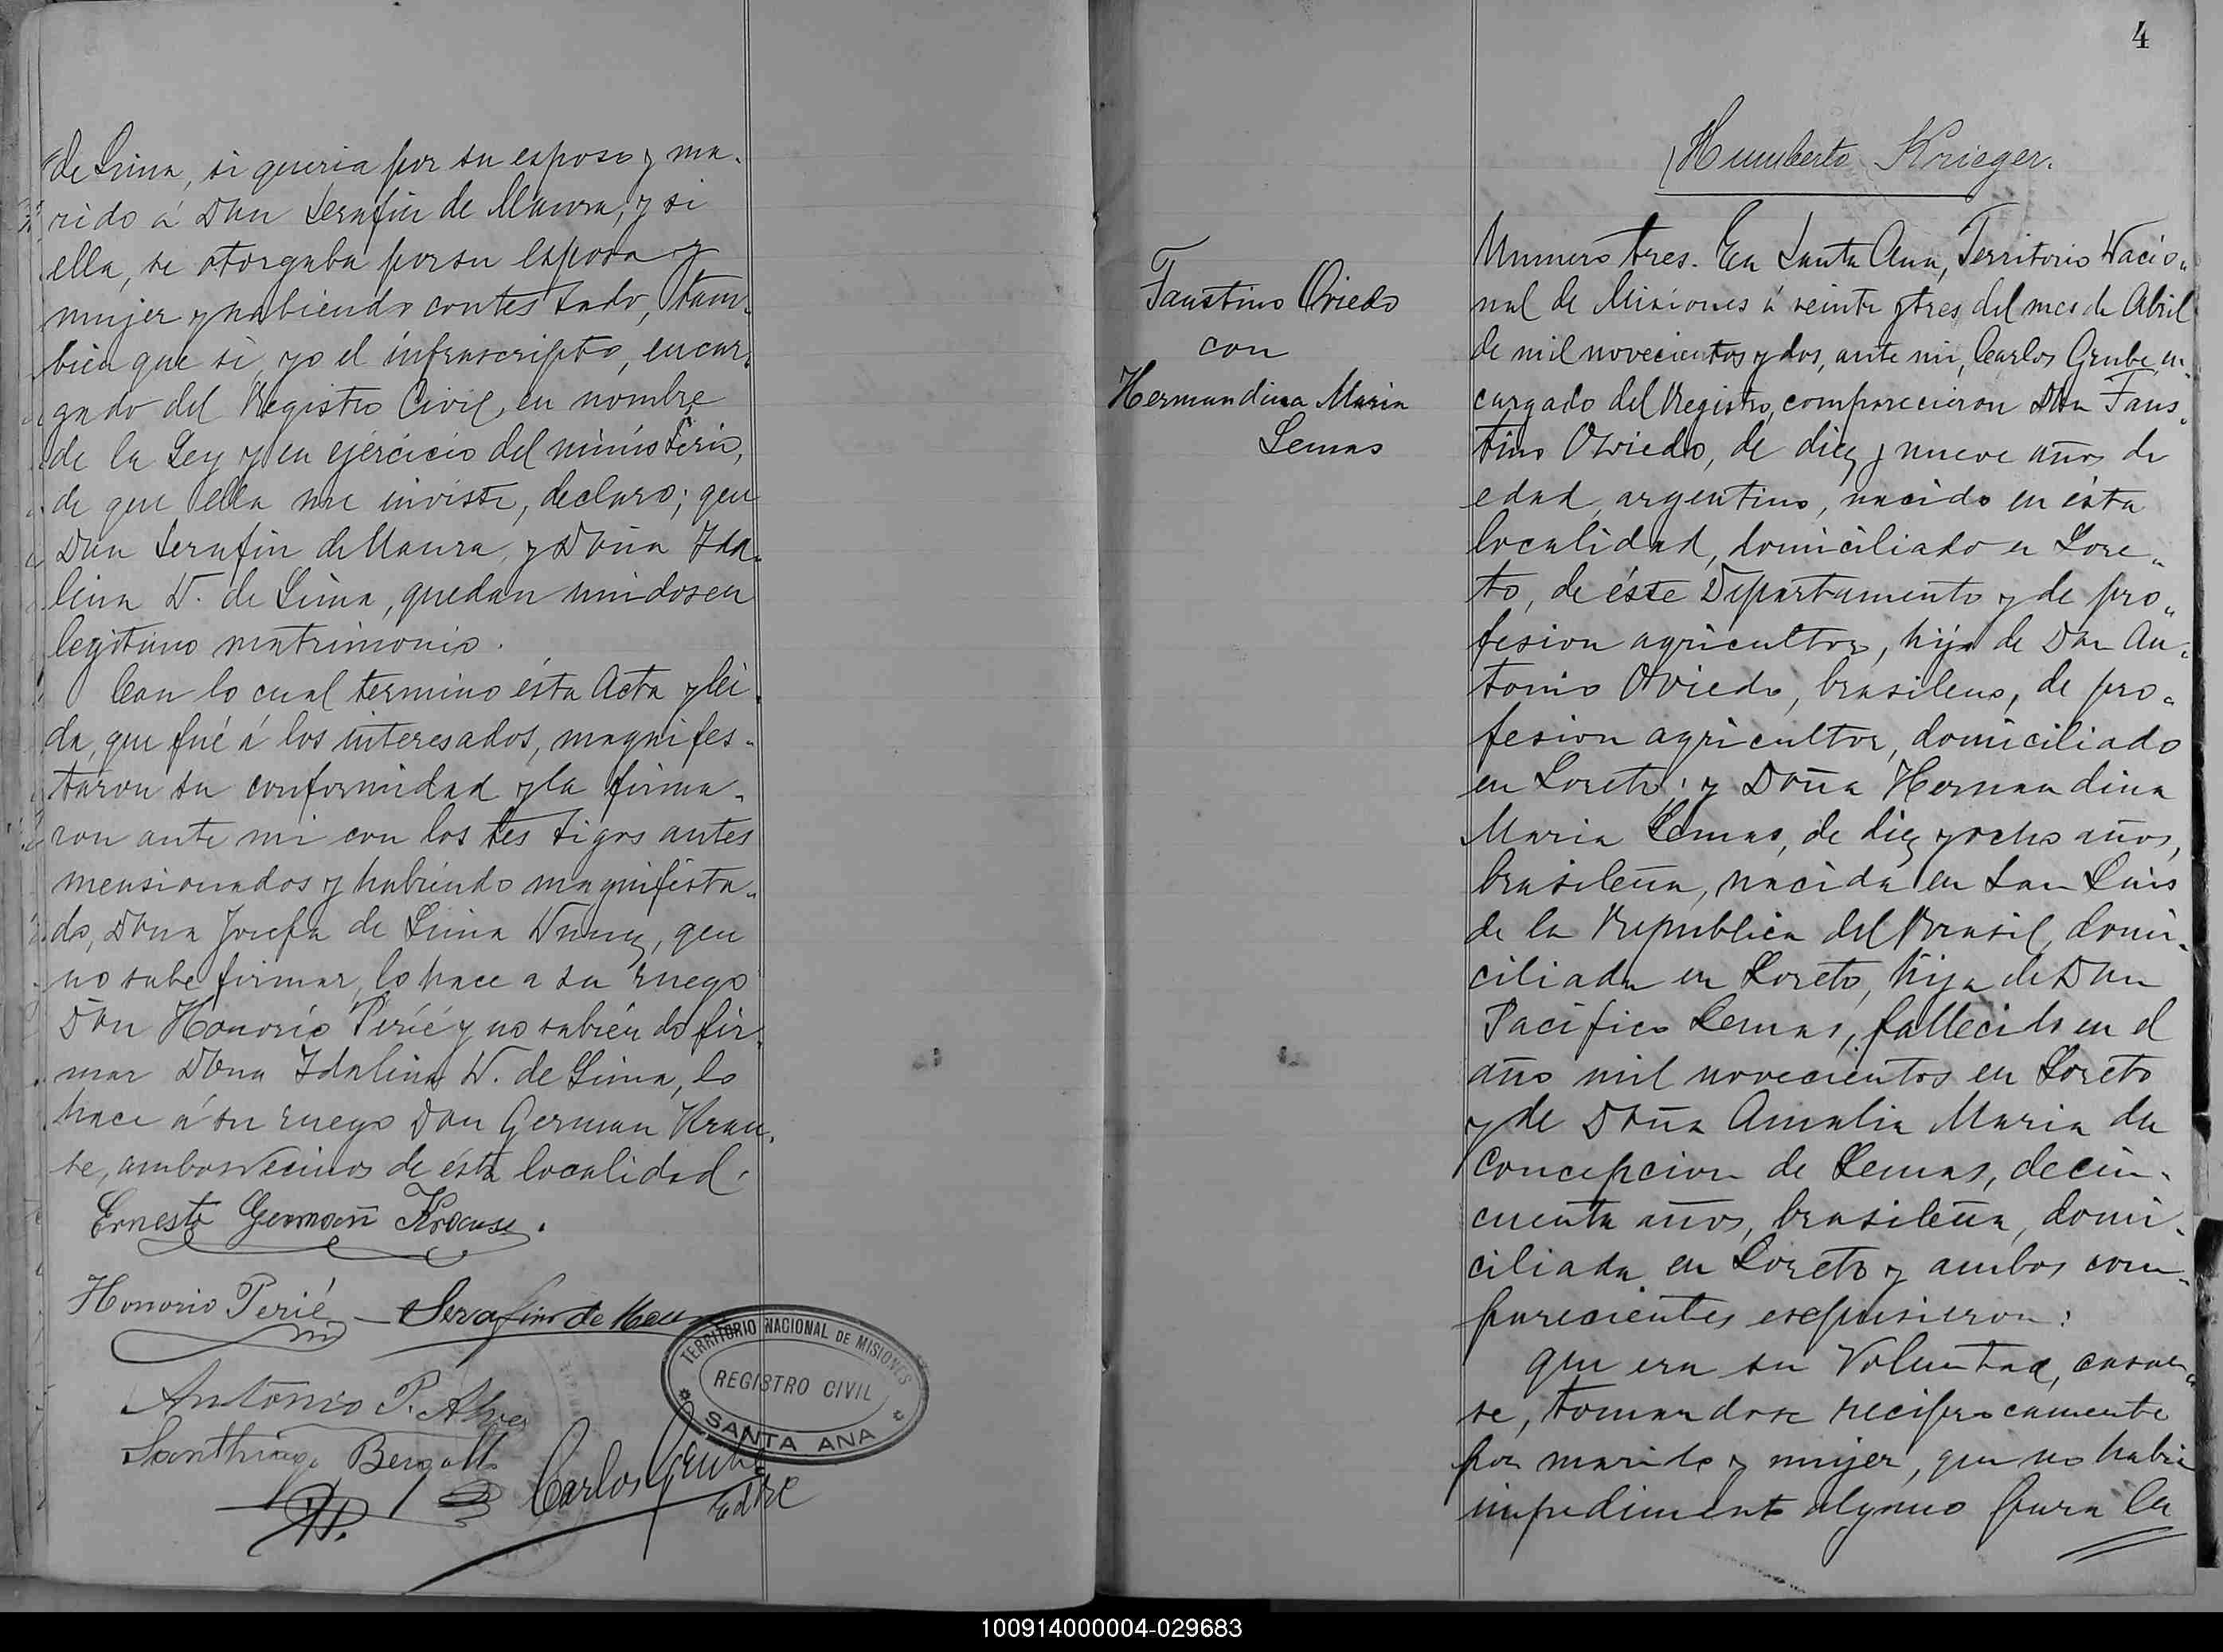 de Lima, si queria por su esposo y ma-
rido á Don Serafin de Maura, y si
ella, se otorgaba por su esposa y
mujer y habiendo contestado, tam-
bien que si, yo el infrascripto, encar-
gado del Registro Civil, en nombre
de la Ley y en ejercicio del ministerio,
de que ella me inviste, declaro; que
Don Serafin de Maura, y Doña Ida-
lina N. de Lima, quedan unidos en
legitimo matrimonio.
Con lo cual termino ésta Acta y lei-
da, que fué á los interesados, magnifes-
taron su conformidad y la firma-
ron ante mi con los testigos antes
mensionados y habiendo magnifesta-
do, Doña Josefa de Lima Nunez, que
no sabe firmar, lo hace a su ruego
Don Honorio Perié y no sabiendo fir-
mar Doña Idalina N. de Lima, lo
hace á su ruego Don German Krau-
se, ambos vecinos de ésta localidad.
Ernesto German Krause.
Honorio Perié Serafino de
TERRITORIO NACIONAL DE MISIONES
REGISTRO CIVIL
SANTA ANA
Antonio P. Alves
Santhiago
Carlos Grube
4
Humberto Krieger.
Faustino Oviedo
con
Hermandina Maria
Lemas
Numero tres. En Santa Ana, Territorio Nacio-
nal de Misiones á veinte y tres del mes de Abril
de mil novecientos y dos, ante mi, Carlos Grube, en-
cargado del Registro, comparecieron Don Faus-
tino Oviedo, de diez y nueve años de
edad, argentino, nacido en ésta
localidad, domiciliado en Lore-
to, de éste Departamento y de pro-
fesion agricultor, hijo de Don An-
tonio Oviedo, brasileno, de pro-
fesion agricultor, domiciliado
en Loreto; y Doña Hernandina
Maria Lemas, de diez y ocho años,
brasileña, nacida en San Luis
de la Republica del Brasil, domi-
ciliada en Loreto, hija de Don
Pacifico Lemas, fallecido en el
año mil novecientos en Loreto
y de Doña Amalia Maria da
Concepcion de Lemas, de cin-
cuenta años, brasileña, domi-
ciliada en Loreto y ambos com-
parecientes esepusieron:
que era su Voluntad, casar-
se, tomandose reciprocamente
por marido y mujer, que no habia
impediment alguno para la
100914000004-029683